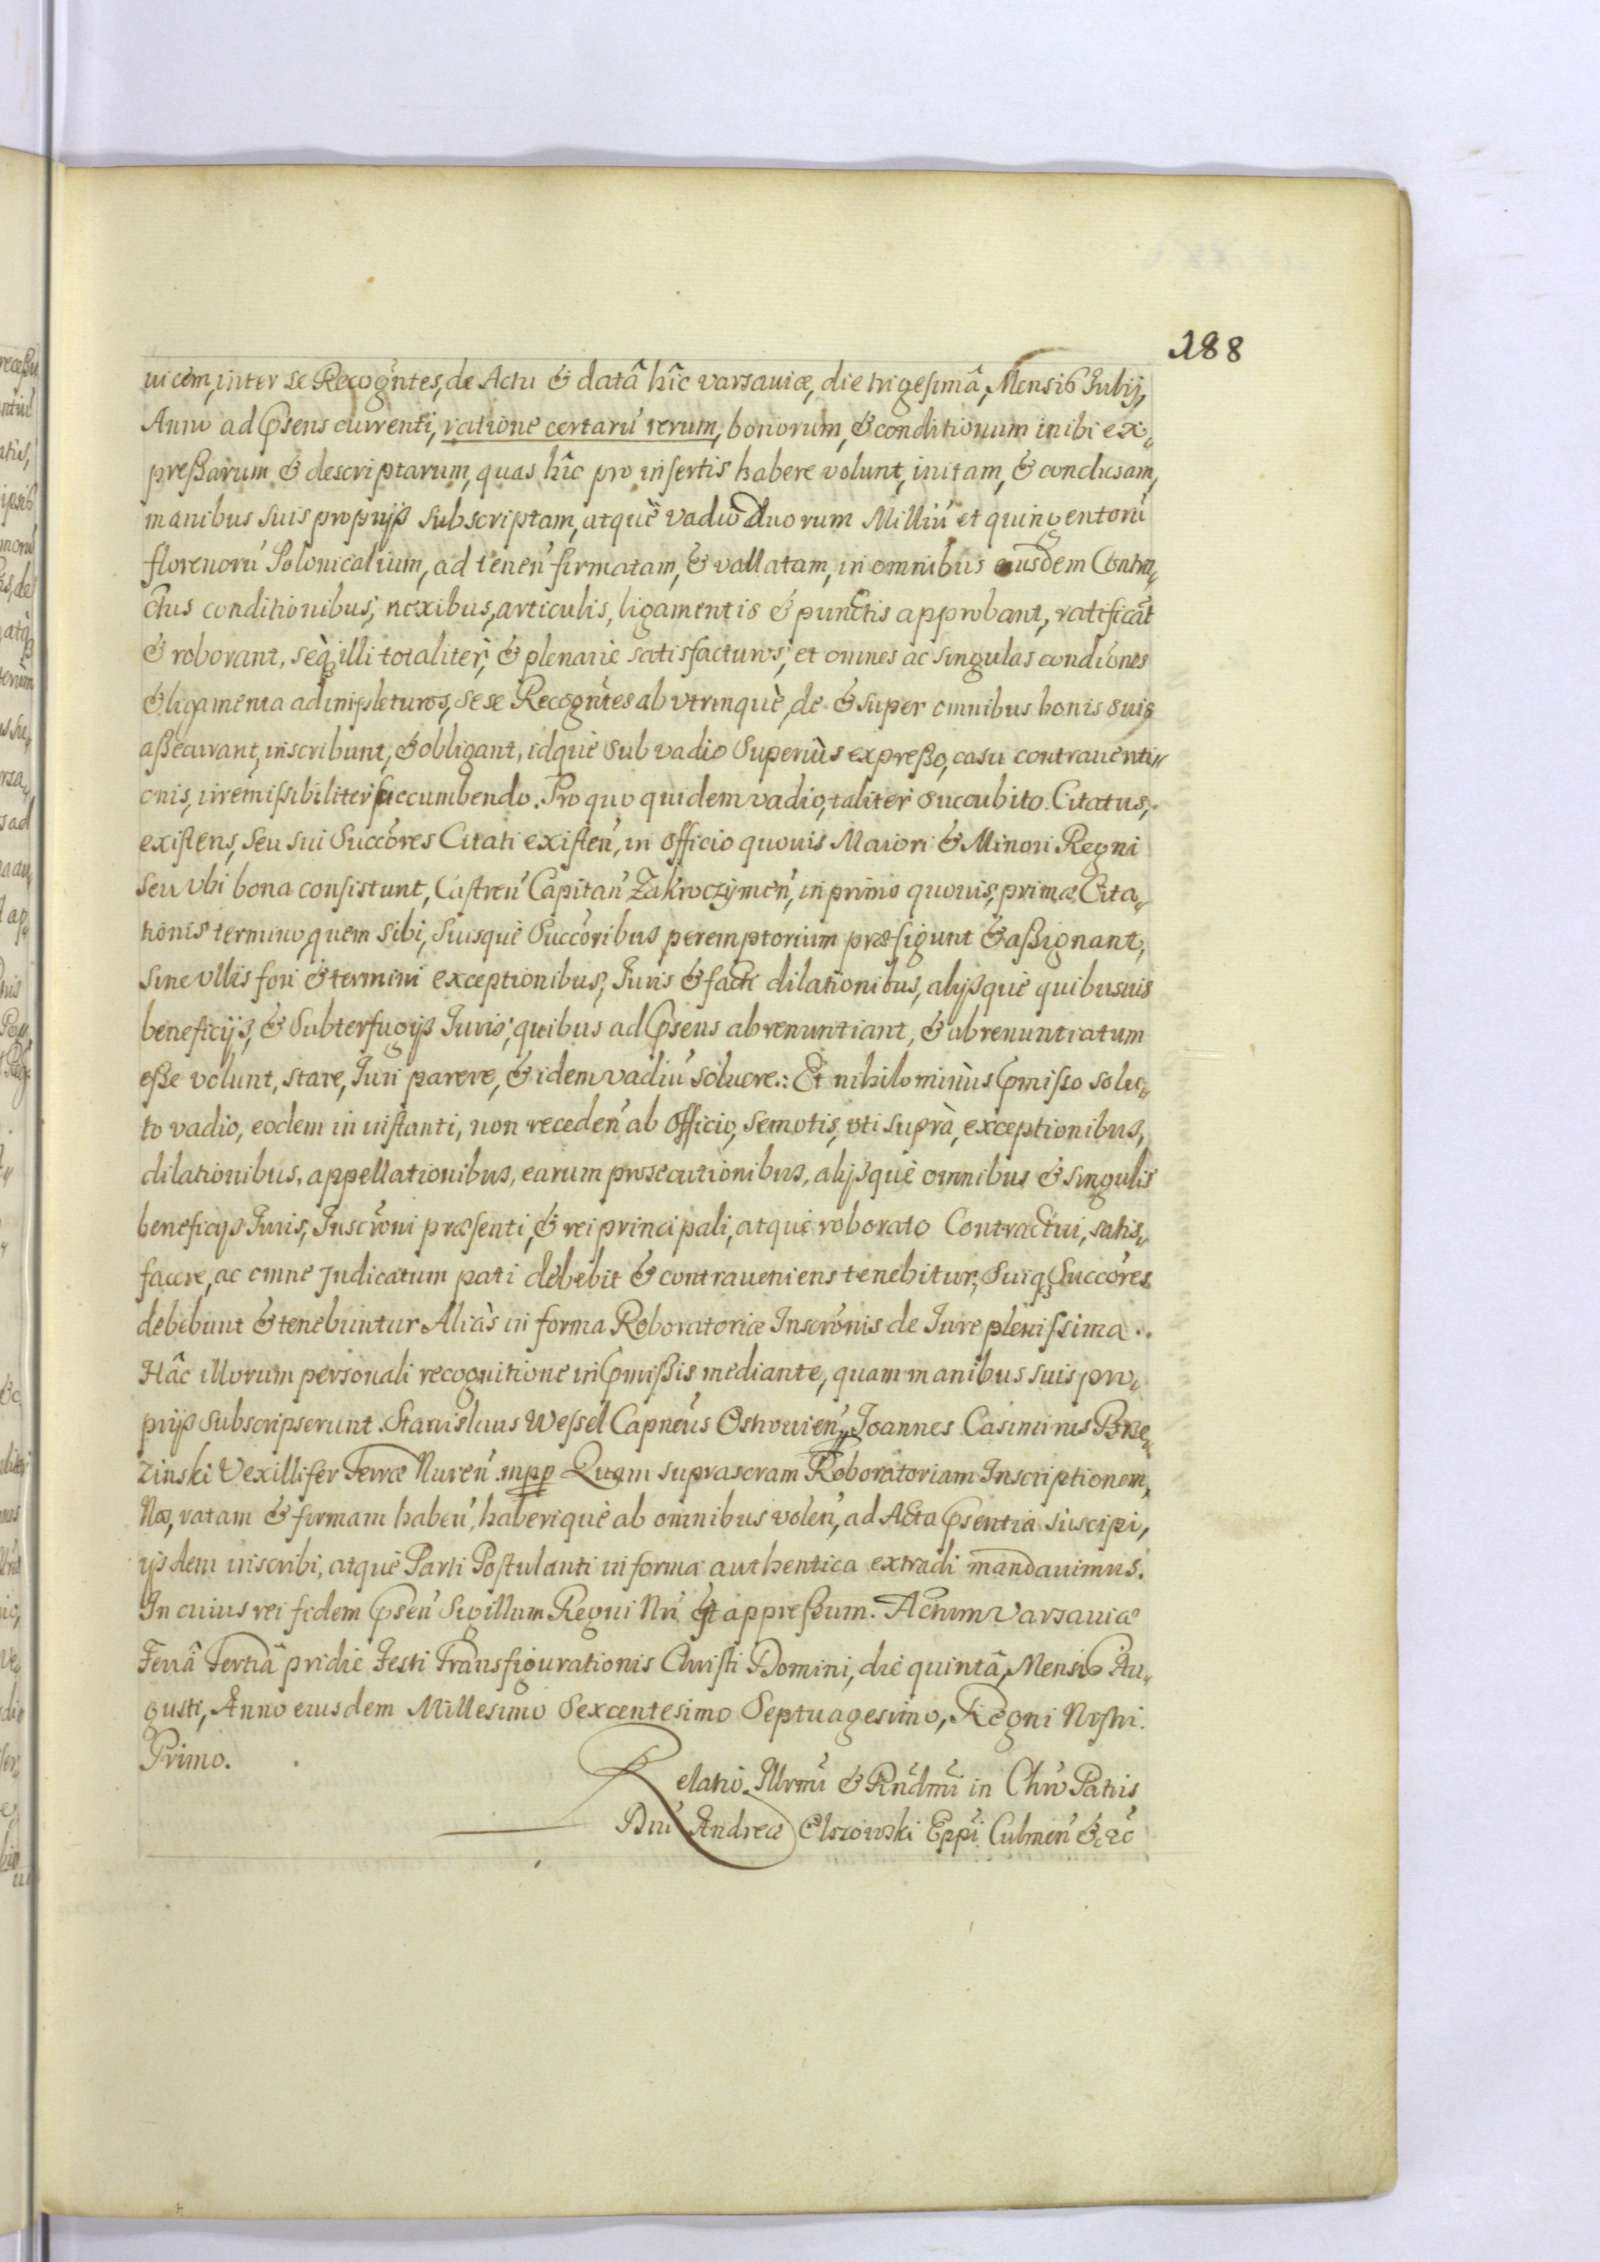 188
uicem, inter se Recogñtes, de Actu & datâ hîc varsauiæ, die trigesimâ, Mensis Julij,
Anno ad p̃sens currenti, ratione certarũ rerum, bonorum, & conditionum inibi ex„
preßarum & descriptarum, quas hîc pro insertis habere volunt, initam, & conclusam,
manibus suis proprijs subscriptam, atquè vadio duorum Milliũ et quingentorũ
florenorũ Polonicalium, ad tenen̄ firmatam, & vallatam, in omnibus eiusdem Contra„
ctus conditionibus, nexibus, articulis, ligamentis & punctis approbant, ratificãt
& roborant, sèq́ illi totaliter, & plenariè satisfacturos, et omnes ac singulas condiõnes
& ligamenta adimpleturos, sese Recogñtes ab vtrinquè, de & super omnibus bonis suis
aßecurant, inscribunt, & obligant, idquè sub vadio superiùs expreßo, casu contrauenti„
onis, irremißibiliter succumbendo. Pro quo quidem vadio, taliter succubito. Citatus,
existens, seu sui Succõres Citati existen̄, in Officio quouis Maiori & Minori Regni
seu vbi bona consistunt, Castren̄ Capitan̄ Zakroczymen̄, in primo quouis, primæ Cita„
tionis termino, quem sibi, suisquè Succõribus peremptorium præfigunt & aßignant,
sine vllis fori & termini exceptionibus, Juris & facti dilationibus, alijsquè quibusuis
beneficijs, & subterfugijs Juris, quibus ad p̃sens abrenuntiant, & abrenuntiatum
eße volunt, stare, Juri parere, & idem vadiũ soluere. Et nihilominùs p̃misso solu„
to vadio, eodem in instanti, non receden̄ ab Officio, semotis, vti suprà, exceptionibus,
dilationibus, appellationibus, earum prosecutionibus, alijsquè omnibus & singulis
beneficijs Juris, Inscrõni præsenti, & rei principali, atquè roborato Contractui, satis„
facere, ac omne Judicatum pati debebit & contraueniens tenebitur, suiq́ Succõres
debebunt & tenebuntur. Aliàs in forma Roboratoriæ Inscrõnis de Jure plenissima.
Hâc illorum personali recognitione in p̃mißis mediante, quam manibus suis pro„
prijs subscripserunt. Stanislaus Wessel Capneus Ostrouien̄, Joannes Casimirus Brze„
zinski Vexillifer Terræ Nuren̄ mpp Quam suprascram Roboratoriam Inscriptionem,
Nos, ratam & firmam haben̄, haberiquè ab omnibus volen̄, ad Acta p̃sentia suscipi,
ijsdem inscribi, atquè Parti Postulanti in forma authentica extradi mandauimus.
In cuius rei fidem p̃sen̄ Sigillum Regni Nr̃i est appreßum. Actum Varsauiæ
Feriâ Tertiâ pridiè Festi Transfigurationis Christi Domini, die quintâ, Mensis Au„
gusti, Anno eiusdem Millesimo Sexcentesimo Septuagesimo, Regni Nostri.
Primo.
Relatio Illrmi & Rndmi in Chro Patris
Dni Andreæ Olszowski Eppi Culmen̄ &c